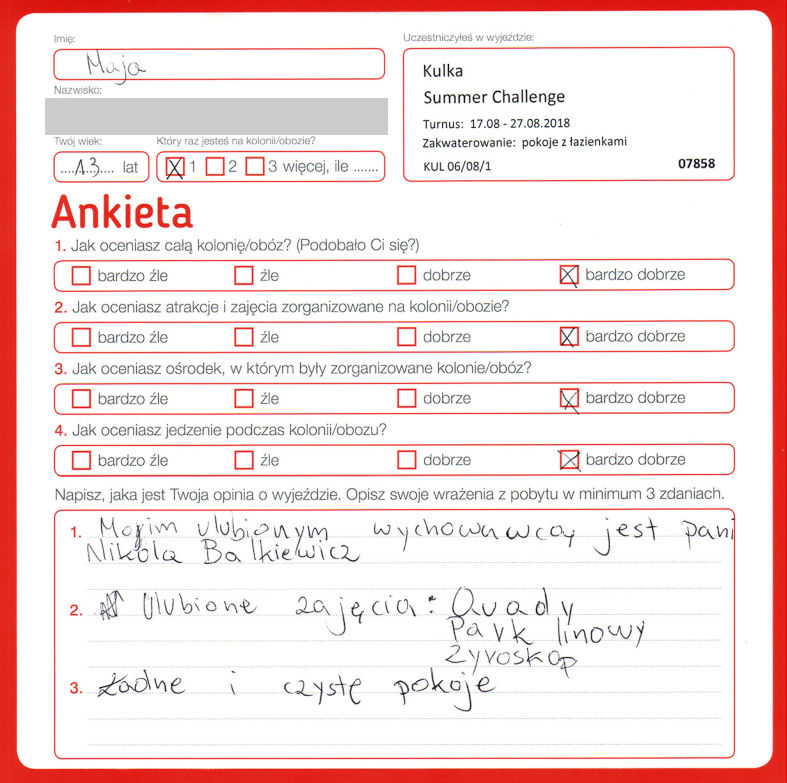 Imię:
Maja
Nazwisko:
Twój wiek:
13 lat
Który raz jesteś na kolonii/obozie?
1 2 3 więcej, ile .......
Uczestniczyłeś w wyjeździe:
Kulka
Summer Challenge
Turnus: 17.08 - 27.08.2018
Zakwaterowanie: pokoje z łazienkami
KUL 06/08/1 07858
Ankieta
1. Jak oceniasz całą kolonię/obóz? (Podobało Ci się?)
bardzo źle źle dobrze bardzo dobrze
2. Jak oceniasz atrakcje i zajęcia zorganizowane na kolonii/obozie?
bardzo źle źle dobrze bardzo dobrze
3. Jak oceniasz ośrodek, w którym były zorganizowane kolonie/obóz?
bardzo źle źle dobrze bardzo dobrze
4. Jak oceniasz jedzenie podczas kolonii/obozu?
bardzo źle źle dobrze bardzo dobrze
Napisz, jaka jest Twoja opinia o wyjeździe. Opisz swoje wrażenia z pobytu w minimum 3 zdaniach.
1. Moim ulubionym wychowawcą jest pani
Nikola Balkiewicz
2. Ulubione zajęcia: Quady
Park linowy
Żyroskop
3. Ładne i czystę pokoje